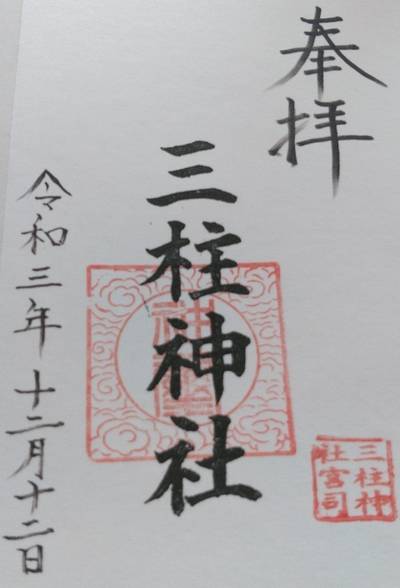 奉拝
三柱神社
令和三年十二月十二日
三柱神
社宮司